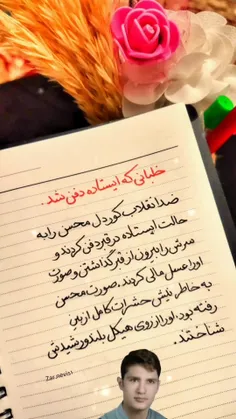 خلبانی که ایستاده دفن شد.
ضدانقلاب کوردل محسن را به
حالت ایستاده در قبر دفن کردند و
سرش را بیرون از قبر گذاشتن و صورت
اورا عسل مالی کردند. صورت محسن
به خاطر نیش حشرات کامل از بین
رفته بود. اورا از روی هیکل بلند و رشیدش
شناختند.
Zar.nevis1